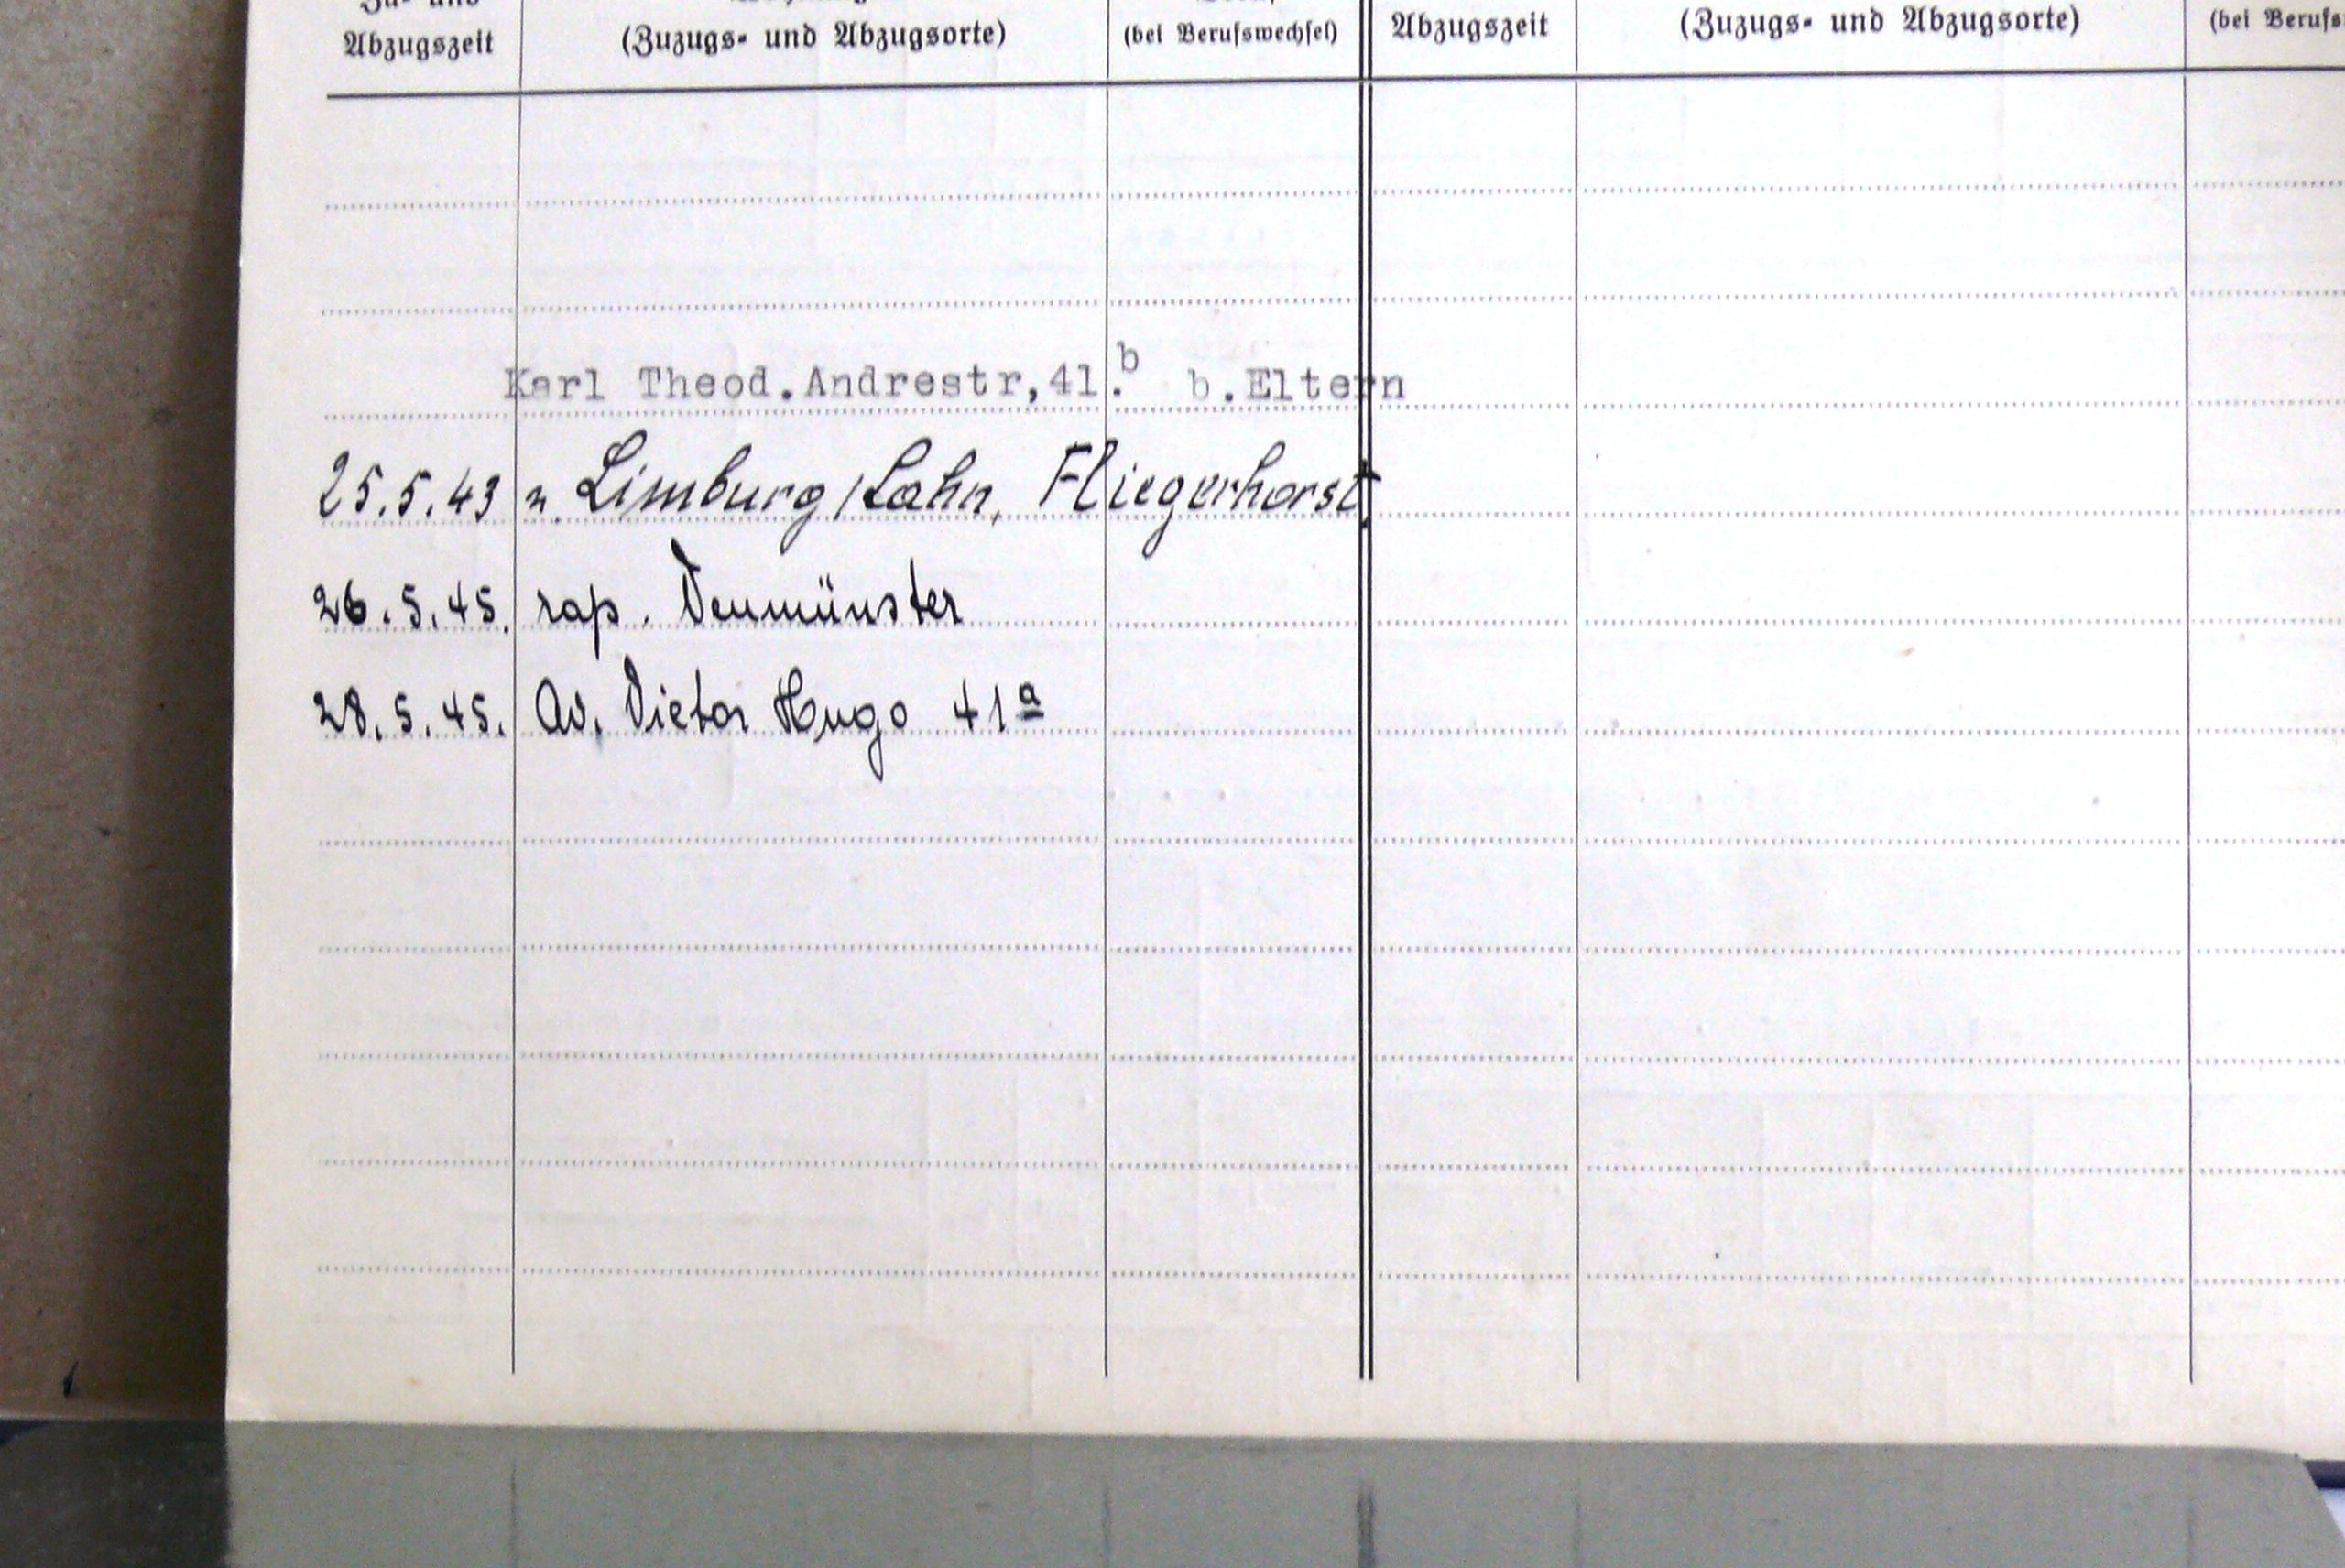 Zu- und
Abzugszeit (Zuzugs- und Abzugsorte) (bei Berufswechsel) Abzugszeit (Zuzugs- und Abzugsorte) (bei Berufs
Karl Theod.Andrestr,41.b b.Eltern
25.5.43 n. Limburg/Lahn, Fliegerhorst
26.5.45. rap. Neumünster
28.5.45. Av. Victor Hugo 41a